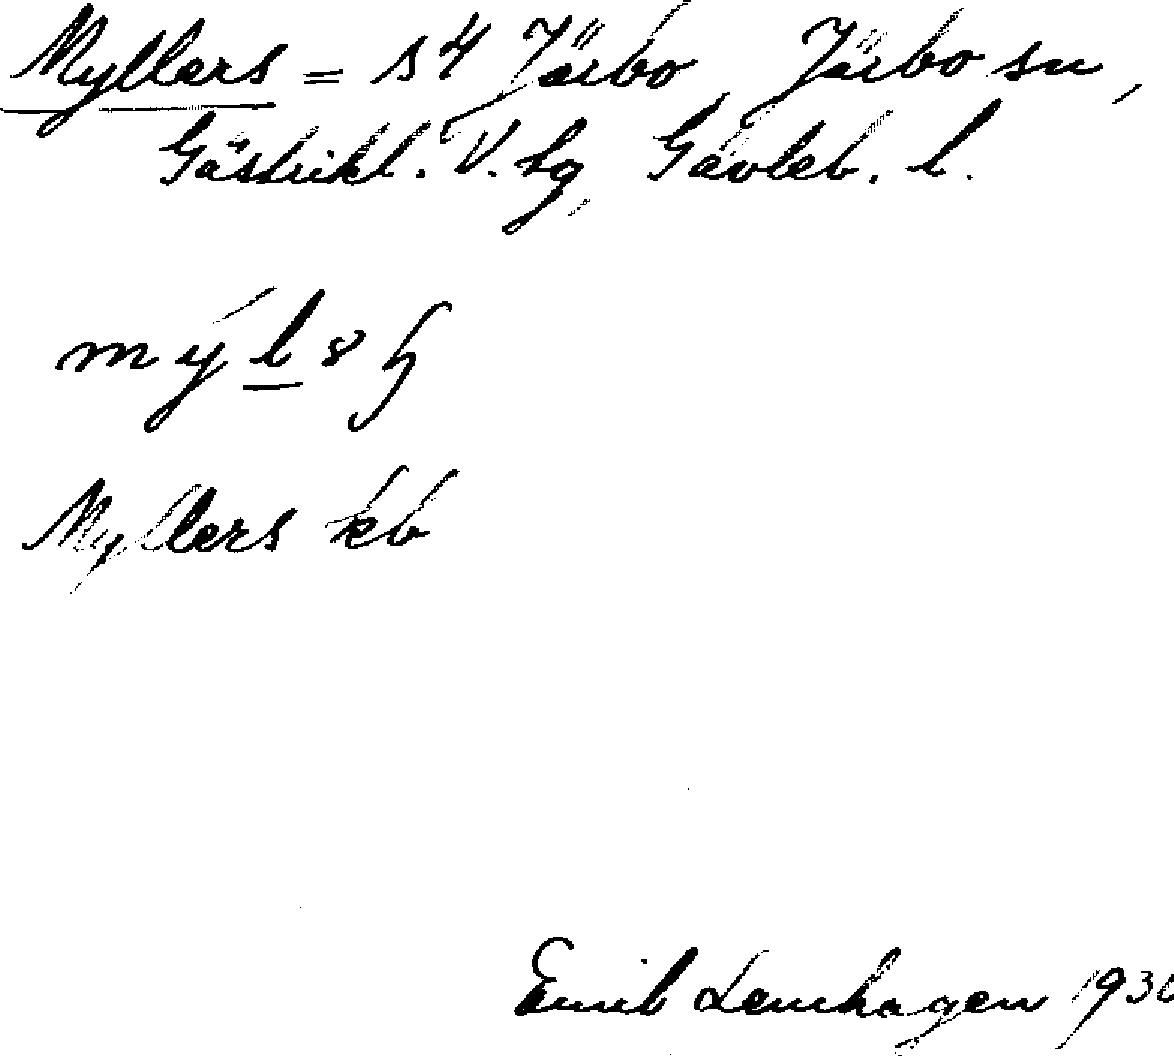 Myllers = s 4 Järbo, Järbo sn,
Gästrikl. V. tg, Gävleb. l.
Myllers kb
Emil Lemhagen